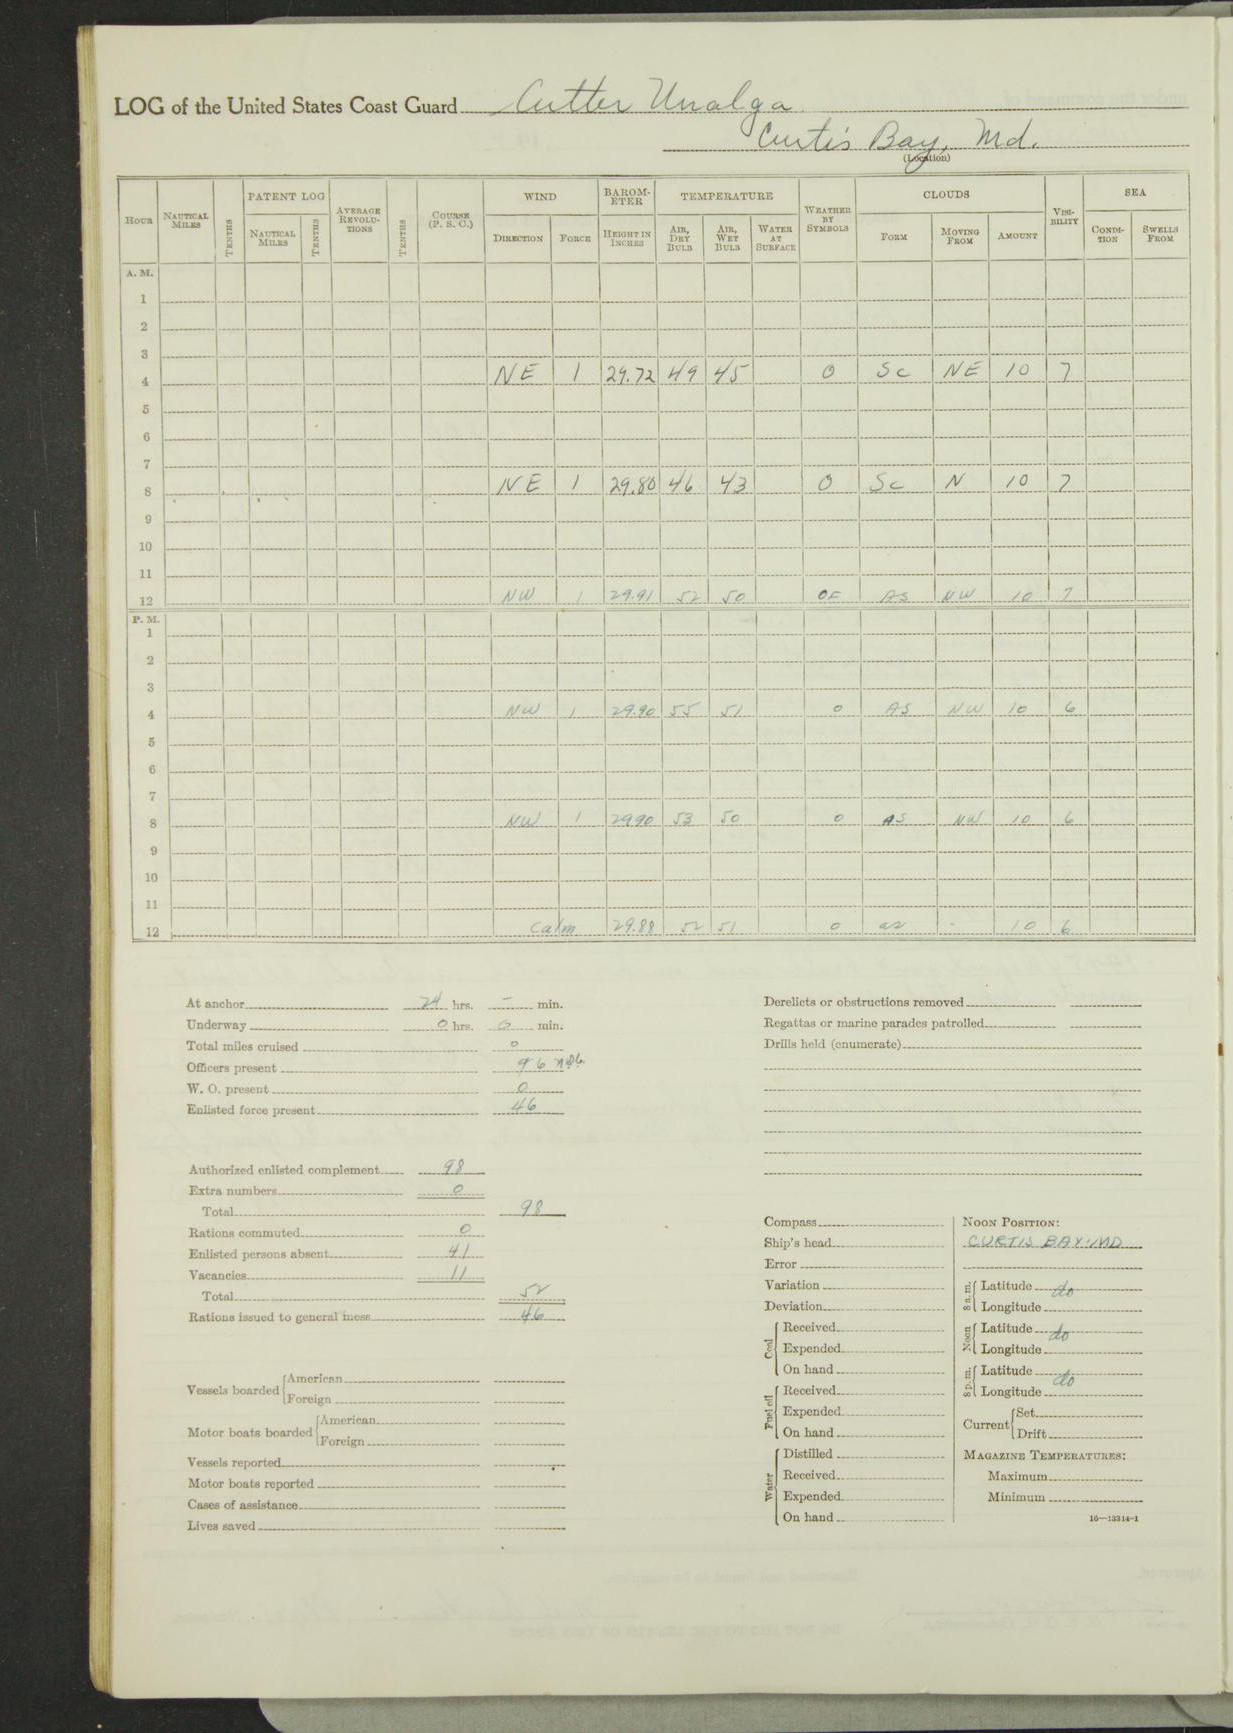 LOG of the United States Coast Guard Cutter Unalga
Curtis Bay, Md.
(Location)
HOUR NAUTICAL MILES TENTHS PATENT LOG NAUTICAL MILES TENTHS AVERAGE REVOLU-TIONS TENTHS COURSE (P. S. C.) WIND DIRECTION FORCE BAROM-ETER HEIGHT IN INCHES TEMPERATURE AIR, DRY BULB AIR, WET BULB WATER AT SURFACE WEATHER BY SYMBOLS CLOUDS FORM MOVING FROM AMOUNT VISI-BILITY SEA CONDI-TION SWELLS FROM
A. M.
1
2
3
4 NE 1 29.72 49 45 O Sc NE 10 7
5
6
7
8 NE 1 29.80 46 43 O Sc N 10 7
9
10
11
12 NW 1 29.91 52 50 OF AS NW 10 7
P. M.
1
2
3
4 NW 1 29.90 55 51 O AS NW 10 6
5
6
7
8 NW 1 2990 53 50 O AS NW 10 6
9
10
11
12 Calm 29.88 52 51 O as - 10 6
At anchor 24 hrs. — min.
Underway 0 hrs. 0 min.
Total miles cruised 0
Officers present 6
W. O. present 0
Enlisted force present 46
Authorized enlisted complement 98
Extra numbers 0
Total 98
Rations commuted 0
Enlisted persons absent 41
Vacancies 11
Total 52
Rations issued to general mess 46
Vessels boarded American
Foreign
Motor boats boarded American
Foreign
Vessels reported
Motor boats reported
Cases of assistance
Lives saved
Derelicts or obstructions removed
Regattas or marine parades patrolled
Drills held (enumerate)
Compass
Ship's head
Error
Variation
Deviation
Coal Received
Expended
On hand
Fuel oil Received
Expended
On hand
Water Distilled
Received
Expended
On hand
NOON POSITION:
CURTIS BAY. MD
8 a. m. Latitude do
Longitude
Noon Latitude do
Longitude
8 p. m. Latitude do
Longitude
Current Set
Drift
MAGAZINE TEMPERATURES:
Maximum
Minimum
16—13314-1